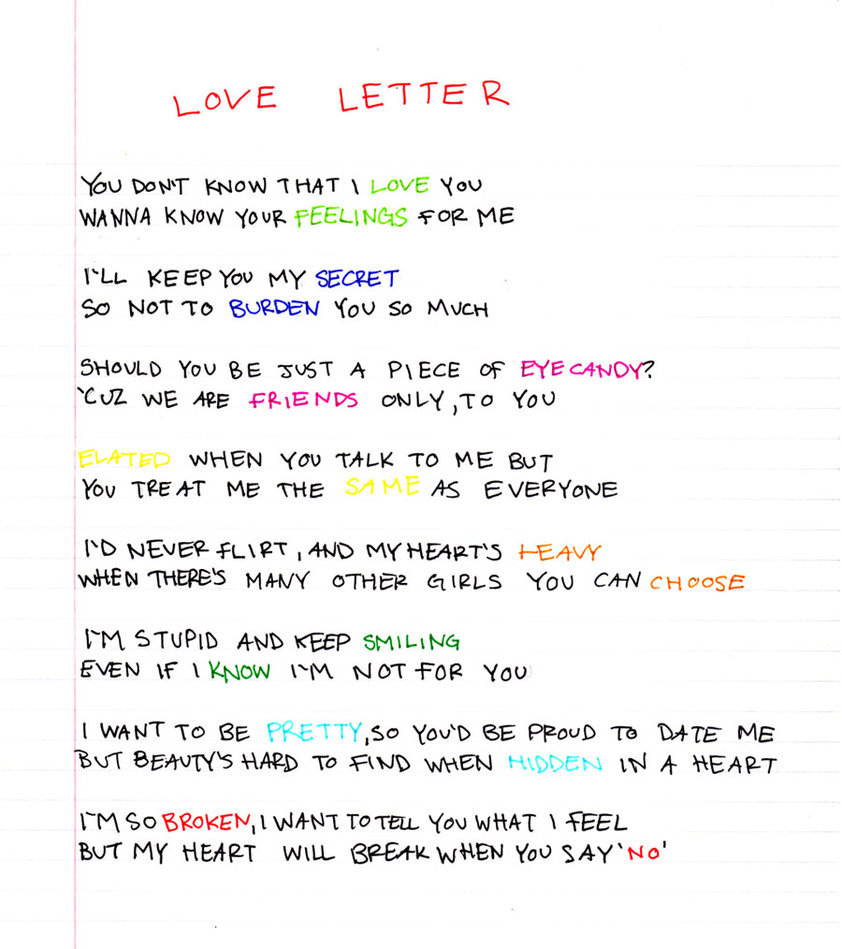 LOVE LETTER
YOU DON'T KNOW THAT I LOVE YOU
WANNA KNOW YOUR FEELINGS FOR ME
I'LL KEEP YOU MY SECRET
SO NOT TO BURDEN YOU SO MUCH
SHOULD YOU BE JUST A PIECE OF EYECANDY?
'CUZ WE ARE FRIENDS ONLY, TO YOU
ELATED WHEN YOU TALK TO ME BUT
YOU TREAT ME THE SAME AS EVERYONE
I'D NEVER FLIRT, AND MY HEART'S HEAVY
WHEN THERE'S MANY OTHER GIRLS YOU CAN CHOOSE
I'M STUPID AND KEEP SMILING
EVEN IF I KNOW I'M NOT FOR YOU
I WANT TO BE PRETTY, SO YOU'D BE PROUD TO DATE ME
BUT BEAUTY'S HARD TO FIND WHEN HIDDEN IN A HEART
I'M SO BROKEN, I WANT TO TELL YOU WHAT I FEEL
BUT MY HEART WILL BREAK WHEN YOU SAY 'NO'